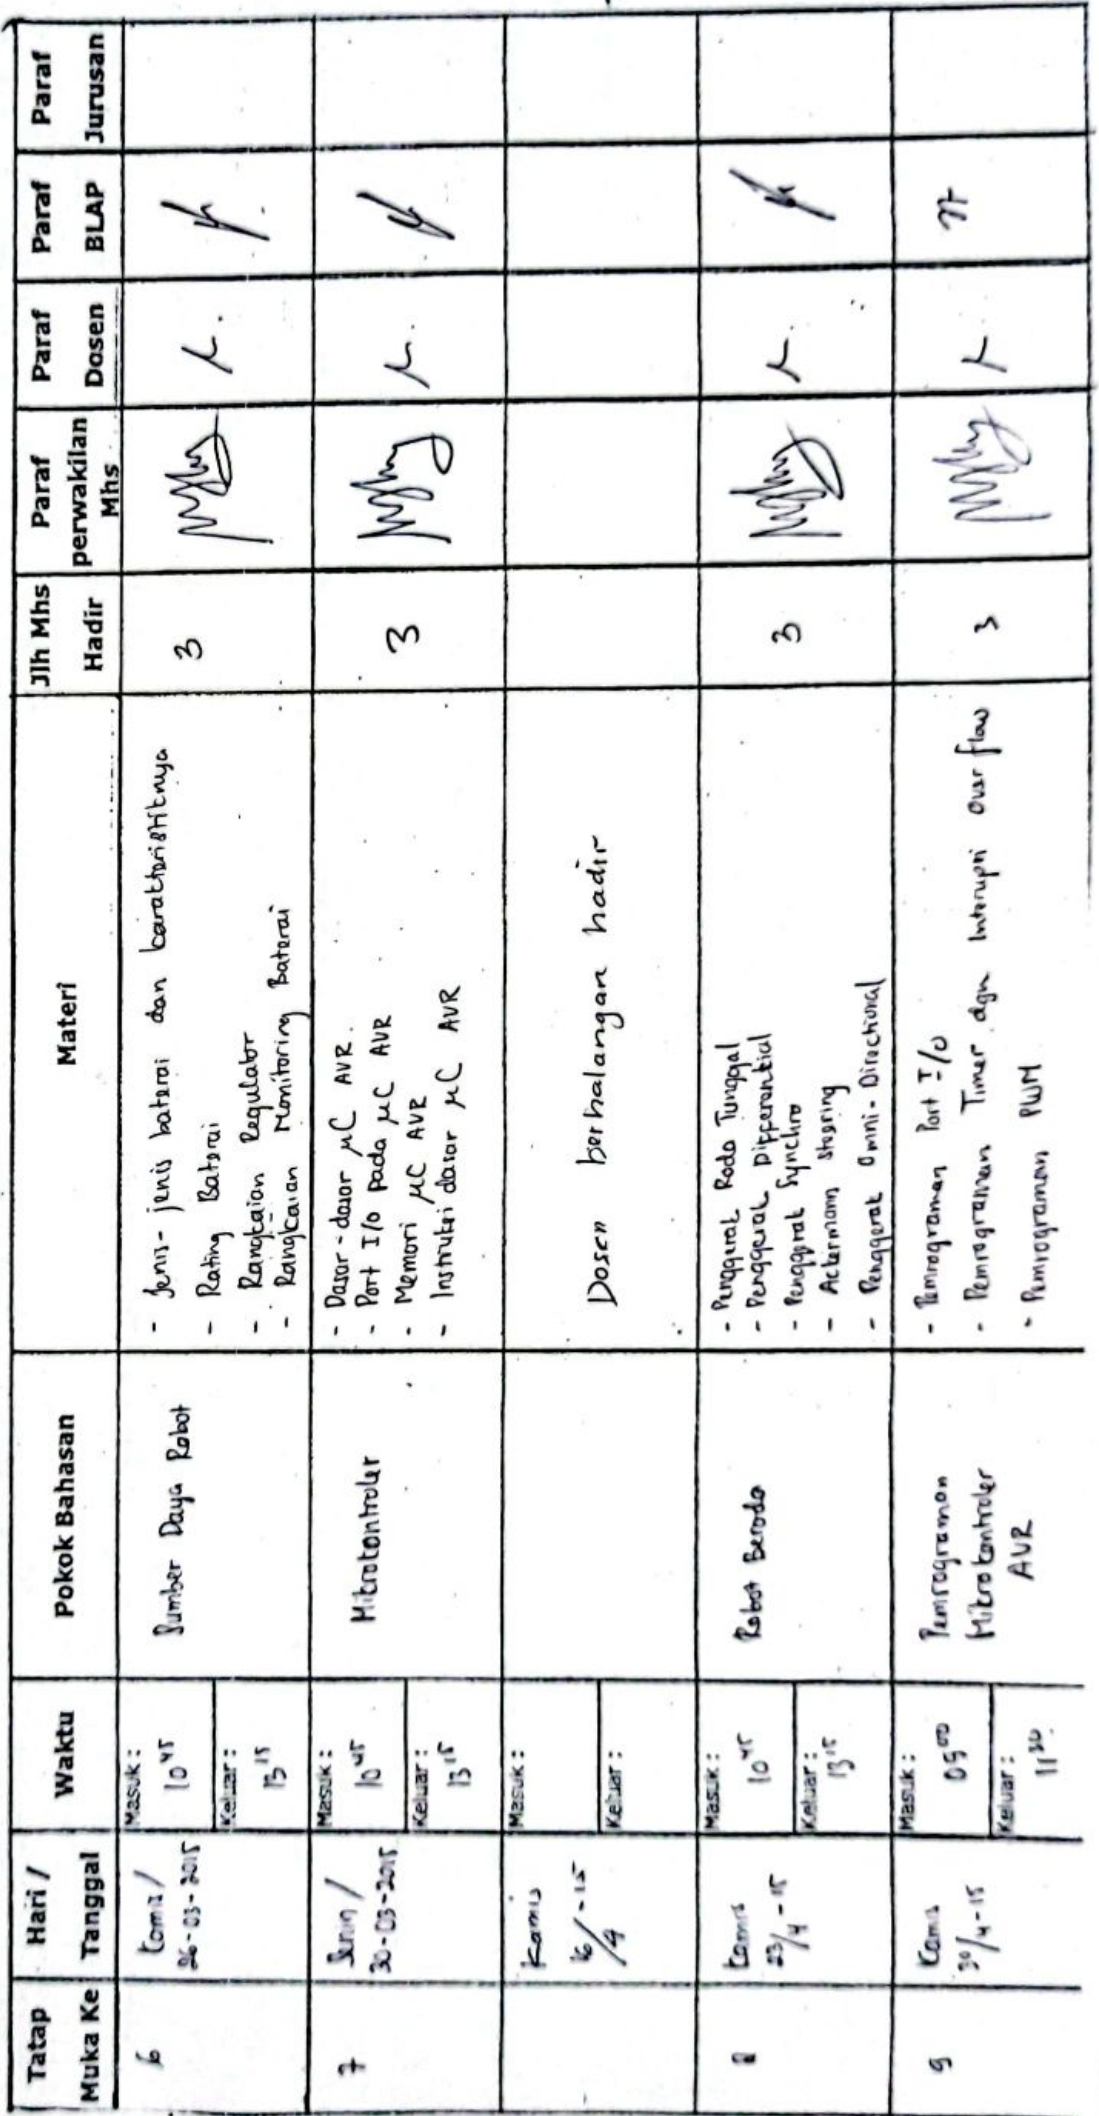 Tatap Muka Ke
Hari / Tanggal
Waktu
Pokok Bahasan
Materi
Jlh Mhs Hadir
Paraf perwakilan Mhs
Paraf Dosen
Paraf BLAP
Paraf Jurusan
6
Kamis /
26-03-2015
Masuk :
10 45
Keluar :
13 15
Sumber Daya Robot
- Jenis-jenis baterai dan karakteristiknya
- Rating Baterai
- Rangkaian Regulator
- Rangkaian Monitoring Baterai
3
7
Senin /
30-03-2015
Masuk :
10 45
Keluar :
13 15
Mikrokontroler
- Dasar-dasar µC AVR.
- Port I/O pada µC AVR
- Memori µC AVR
- Instruksi dasar µC AVR
3
Kamis
16/4-15
Masuk :
Keluar :
Dosen berhalangan hadir
8
Kamis
23/4-15
Masuk :
10 45
Keluar :
13 15
Robot Beroda
- Penggerak Roda Tunggal
- Penggerak Differential
- Penggerak Synchro
- Ackermann Steering
- Penggerak Omni-Directional
3
9
Kamis
30/4-15
Masuk :
09 00
Keluar :
11 30
Pemrograman
Mikrokontroler
AVR
- Pemrograman Port I/O
- Pemrograman Timer dgn Interupsi Over flow
- Pemrograman PWM
3